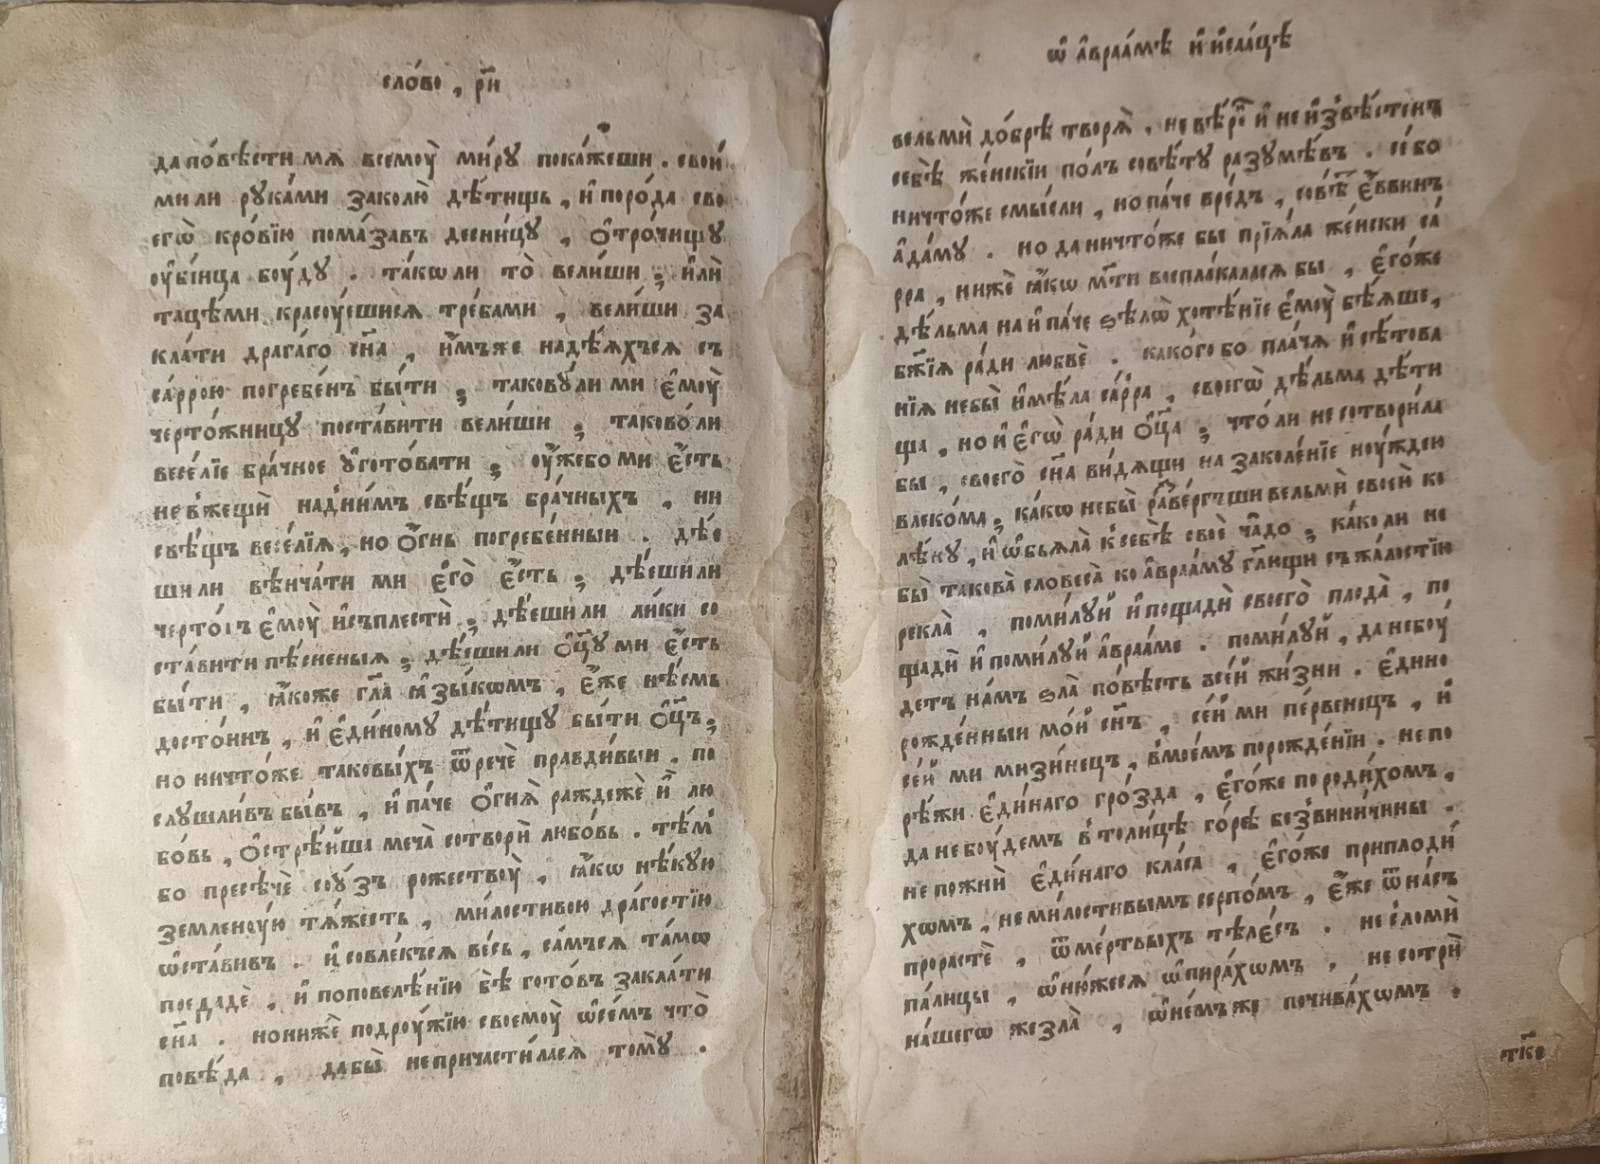 сло́во , р҃и
да по́вѣсти мѧ всемоу̀ ми́рꙋ пока́жеши . свои́
ми ли рꙋка́ми заколю̀ дѣ́тищь , и҆ поро́да сво
егѡ̀ кро́вїю пома́завъ десни́цꙋ , ѻ҆тро́чищꙋ
оу҆бі́ица боу́дꙋ . та́кѡ ли то̀ вели́ши ; и҆лѝ
тацѣ́ми красоу́ешисѧ тре́бами , вели́ши за
кла́ти драга́го сн҃а , и҆́мъже надѣ́ѧхъсѧ съ
са́ррою погребе́нъ бы́ти ; таковꙋ́ ли ми є҆моу̀
черто́жницꙋ поста́вити вели́ши ; таково́ ли
весе́лїе бра́чное ꙋ҆гото́вати ; оу҆́же бо ми є҆́сть
не вжещѝ над̾ни́мъ свѣ́щъ бра́чныхъ , ни
свѣ́щъ весе́лїѧ , но ѻ҆́гнь погребе́нныи . дѣ́е
ши ли вѣнча́ти ми є҆го̀ є҆́сть ; дѣ́еши ли
черто́гъ є҆моу̀ и҆съплестѝ ; дѣ́еши ли ли́ки со
ста́вити пѣ́сненыѧ ; дѣ́еши ли ѻ҆ц҃ꙋ ми є҆́сть
бы́ти , ꙗ҆́коже гл҃а ꙗ҆зы́кѡмъ , є҆́же нѣ́смь
досто́инъ , и҆ є҆ди́номꙋ дѣ́тищꙋ бы́ти ѻ҆ц҃ъ ;
но ничто́же таковы́хъ ѿречѐ правди́выи . по
слꙋшли́въ бы́въ , и҆ па́че ѻ҆гнѧ̀ раждежѐ и҆̀ лю
бо́вь , ѻ҆стрѣ́иша меча̀ сотворѝ любо́вь . тѣ́м̾
бо пресѣчѐ соу́зъ рожествоу̀ , ꙗ҆́кѡ нѣ́кꙋю
земленоу́ю тѧ́жесть , ми́лостивою дра́гостїю
ѡ҆ста́вивъ . и҆ совле́късѧ ве́сь , са́мъсѧ та́мѡ
посдадѐ , и҆ по повелѣ́нїю бѣ̀ гото́въ закла́ти
сн҃а . но нижѐ подроу́жїю своемоу̀ ѡ҆ се́мъ что̀
повѣ́да , да бы̀ не причасти́ласѧ томꙋ̀ .
ѡ҆ а҆враа́мѣ и҆ и҆саа́цѣ
вельмѝ до́брѣ творѧ̀ , не вѣ́рⷪ и҆ не и҆звѣ́стенъ
себѣ̀ же́нскїи по́лъ совѣ́тꙋ разꙋмѣ́въ . се́ бо
ничто́же смы́сли , но па́че вре́дъ , совѣ́ⷮ є҆́ввинъ
а҆да́мꙋ . но да ничто́же бы прїѧ́ла же́нски са́
рра , нижѐ ꙗ҆́кѡ мт҃и восплака́ласѧ бы , є҆го́же
дѣ́льма наипа́че ѕѣлѡ̀ хотѣ́нїе є҆моу̀ бѣ́ѧше ,
бж҃їѧ ра́ди любвѐ . како́го бо пла́чѧ и҆ сѣ́това
нїѧ не бы̀ и҆мѣ́ла са́рра , своегѡ̀ дѣ́льма дѣ́ти
ща , но и҆ є҆гѡ̀ ра́ди ѻ҆ц҃а ; что́ ли не сотвори́ла
бы , своего̀ сн҃а ви́дѧщи на заколе́нїе ноу́ждею
влеко́ма , ка́кѡ не бы̀ ра̑зве́ргъши вельмѝ своѐи ко
лѣ́нꙋ , и҆ ѡ҆бьѧла̀ к̾ себѣ̀ своѐ ча́до ; ка́ко ли не
бы̀ такова̀ словеса̀ ко а҆враа́мꙋ гл҃щи съ жа́лостїю
рекла̀ , поми́лꙋй и҆ пощадѝ своего̀ плода̀ , по
щадѝ и҆ поми́лꙋй а҆враа́ме . поми́лꙋй , да не боу́
детъ на́мъ ѕла̀ по́вѣсть все́й жи́зни . є҆дино
рожде́нныи мо́й сн҃ъ , се́й ми пе́рвенецъ , и҆
се́й ми мизи́нецъ , в̾мое́мъ порожде́нїи . не по
рѣ́жи є҆ди́наго гро́зда , є҆го́же породи́хомъ ,
да не боу́демъ в̾ толи́цѣ го́рѣ безвиничины .
не пожнѝ є҆ди́наго кла́са , є҆го́же приплоди́
хѡмъ , не ми́лостивымъ серпо́мъ , є҆́же ѿ на́съ
прорастѐ , ѿ ме́ртвыхъ тѣле́съ . не сломѝ
па́лицы , ѡ҆ ню́жесѧ ѡ҆пира́хѡмъ , не сотрѝ
на́шегѡ жезла̀ , ѡ҆ не́мъже почива́хѡмъ .
тⷦ҇о